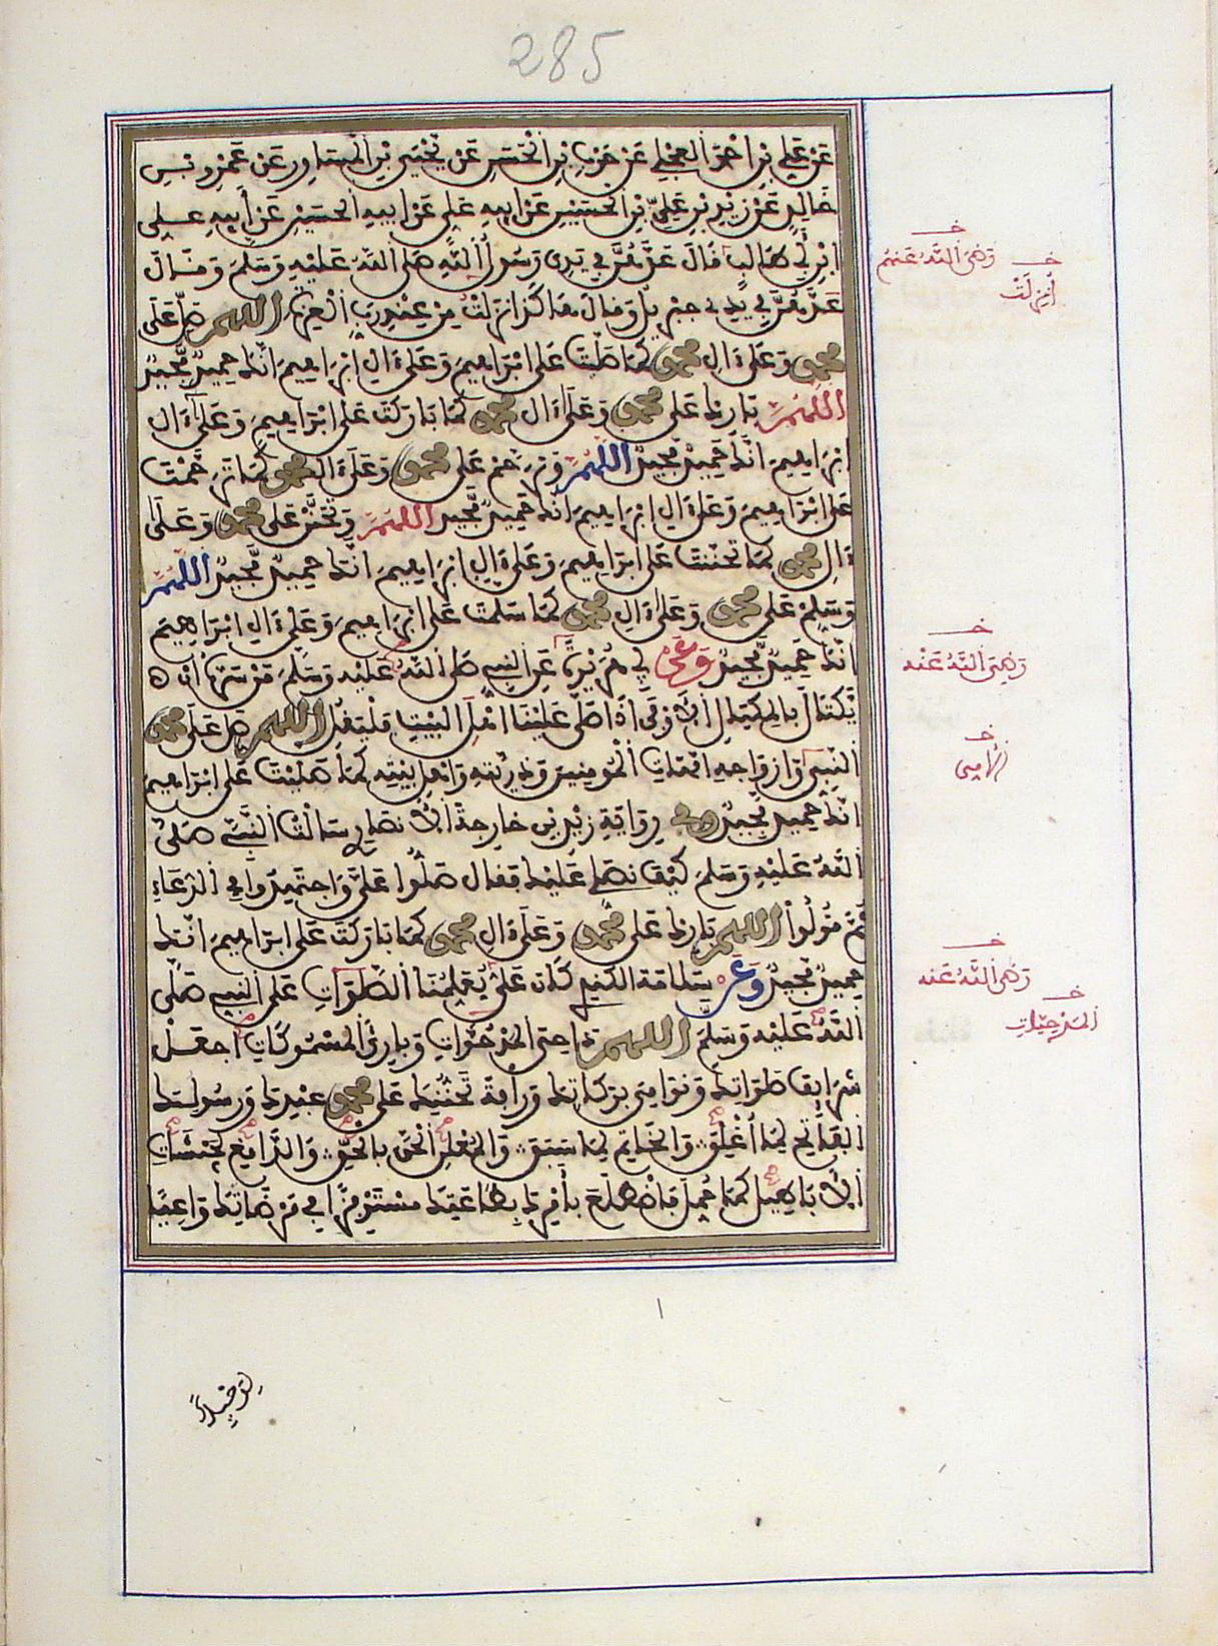 285
عَن عَلِي بْنِ احْمَد العجلي عَن حَرب بْنِ الْحَسَن عَنْ يَحْيَى بْنِ الْمُسَاوِر عَن عَمْرِو بْن
خَالِدٍ عَن زَيْدِ بْنِ عَلِيّ بْنِ الحُسَيْنِ عَن ابِيهِ عَلِي عَن ابِيهِ الحُسَيْنِ عَن أَبِيهِ عَلِي
ابْنِ أَبِي طَالِب قَالَ عَدَّهُنَّ فِي يَدِي رَسُولُ اللَّهِ صَلَّى اللَّهُ عَلَيْهِ وَسَلَّمَ وَقَالَ
عَدَّهُنَّ فِي يَدِي جِبْرِيلُ وَقَالَ هَاكَذَا نَزَلْتُ مِنْ عِنْدِ رَبِّ الْعِزَّةِ اللهم صَلِّ عَلَى
محمد وَعَلَى ءَالِ محمد كَمَا صَلَّيْتَ عَلَى ابْرَاهِيمَ وَعَلَى ءَالِ ابْرَاهِيمَ انَّكَ حَمِيدٌ مَّجِيدٌ
اللَّهُمَّ بَارِك عَلَى محمد وَعَلَى ءَالِ محمد كَمَا بَارَكْتَ عَلَى ابْرَاهِيمَ وَعَلَى ءَالِ
ابْرَاهِيمَ انَّكَ حَمِيدٌ مَّجِيدٌ اللَّهُمَّ وَتَرَحَّمْ عَلَى محمد وَعَلَى ءَالِ محمد كَمَا تَرَحَّمْتَ
عَلَى ابْرَاهِيمَ وَعَلَى ءَالِ ابْرَاهِيمَ انَّكَ حَمِيدٌ مَّجِيدٌ اللَّهُمَّ وَتَحَنَّنْ عَلَى محمد وَعَلَى
ءَالِ محمد كَمَا تَحَنَّنْتَ عَلَى ابْرَاهِيمَ وَعَلَى ءَالِ ابْرَاهِيمَ انَّكَ حَمِيدٌ مَّجِيدٌ اللَّهُمَّ
وَسَلِّمْ عَلَى محمد وَعَلَى ءَالِ محمد كَمَا سَلَّمْتَ عَلَى ابْرَاهِيمَ وَعَلَى ءَالِ ابْرَاهِيمَ
انَّكَ حَمِيدٌ مَّجِيدٌ وَعَن أَبِي هُرَيْرَةَ عَنِ النَّبِيِّ صَلَّى اللَّهُ عَلَيْهِ وَسَلَّمَ مَنْ سَرَّهُ أَنْ
يَّكْتَالَ بِالمِكْيَالِ الأَوْفَى اذَا صَلَّى عَلَيْنَا اهْلَ البَيْتِ فَلْيَقُلِ اللهم صَلِّ عَلَى محمد
النَّبِيِّ وَأَزْوَاجِهِ امَّهَاتِ الْمُومِنِينَ وَذُرِّيَّتِهِ وَاهْلِ بَيْتِهِ كَمَا صَلَّيْتَ عَلَى ابْرَاهِيمَ
انَّكَ حَمِيدٌ مَّجِيدٌ وفي رِوَايَةِ زَيْدِ بْنِ خَارِجَةَ الأَنصَارِي سَأَلْتُ النَّبِيَّ صَلَّى
اللَّهُ عَلَيْهِ وَسَلَّمَ كَيْفَ نُصَلِّي عَلَيْكَ فَقَالَ صَلُّوا عَلَيَّ وَاجْتَهِدُوا فِي الدُّعَاءِ
ثُمَّ قُولُوا اللهم بَارِك عَلَى محمد وَعَلَى ءَالِ محمد كَمَا بَارَكْتَ عَلَى ابْرَاهِيمَ انَّكَ
حَمِيدٌ مَّجِيدٌ وَعَن سَلَامَةَ الكِنْدِي كَانَ عَلِيٌّ يُعَلِّمُنَا الصَّلَوَاتِ عَلَى النَّبِيِّ صَلَّى
اللَّهُ عَلَيْهِ وَسَلَّمَ اللهم دَاحِيَ الْمَدْحُوَّاتِ وَبَارِئَ الْمَسْمُوكَاتِ اجْعَلْ
شَرَايِفَ صَلَوَاتِكَ وَنَوَامِيَ بَرَكَاتِكَ وَرَأْفَةَ تَحَنُّنِكَ عَلَى محمد عَبْدِكَ وَرَسُولِكَ
الفَاتِحِ لِمَا أُغْلِقَ وَالخَاتِمِ لِمَا سَبَقَ وَالمُعْلِنِ الحَقَّ بِالحَقِّ وَالدَّامِغِ لِجَيْشَاتِ
الأَبَاطِيلِ كَمَا حُمِّلَ فَاضْطَلَعَ بِأَمْرِكَ بِطَاعَتِكَ مُسْتَوْفِزًا فِي مَرْضَاتِكَ وَاعِيًا
خـ
رَضِيَ اللَّهُ عَنْهُمْ
خـ
أُنْزِلَتْ
خـ
رَضِيَ اللَّهُ عَنْهُ
خـ
الأُمِّي
خـ
رَضِيَ اللَّهُ عَنْهُ
خـ
المَدْحِيَّاتِ
لِوَحْيِكَ